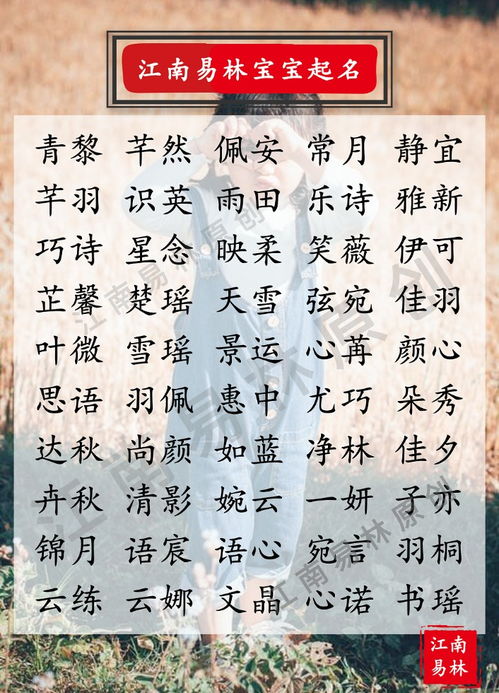 江南易林宝宝起名
青黎 芊然 佩安 常月 静宜
芊羽 识英 雨田 乐诗 雅新
巧诗 星念 映柔 笑薇 伊可
芷馨 楚瑶 天雪 弦宛 佳羽
叶微 雪瑶 景运 心苒 颜心
思语 羽佩 惠中 尤巧 朵秀
达秋 尚颜 如蓝 净林 佳夕
卉秋 清影 婉云 一妍 子亦
锦月 语宸 语心 宛言 羽桐
云练 云娜 文晶 心诺 书瑶
江南易林原创
江南易林原创
江南易林原创
江南
易林